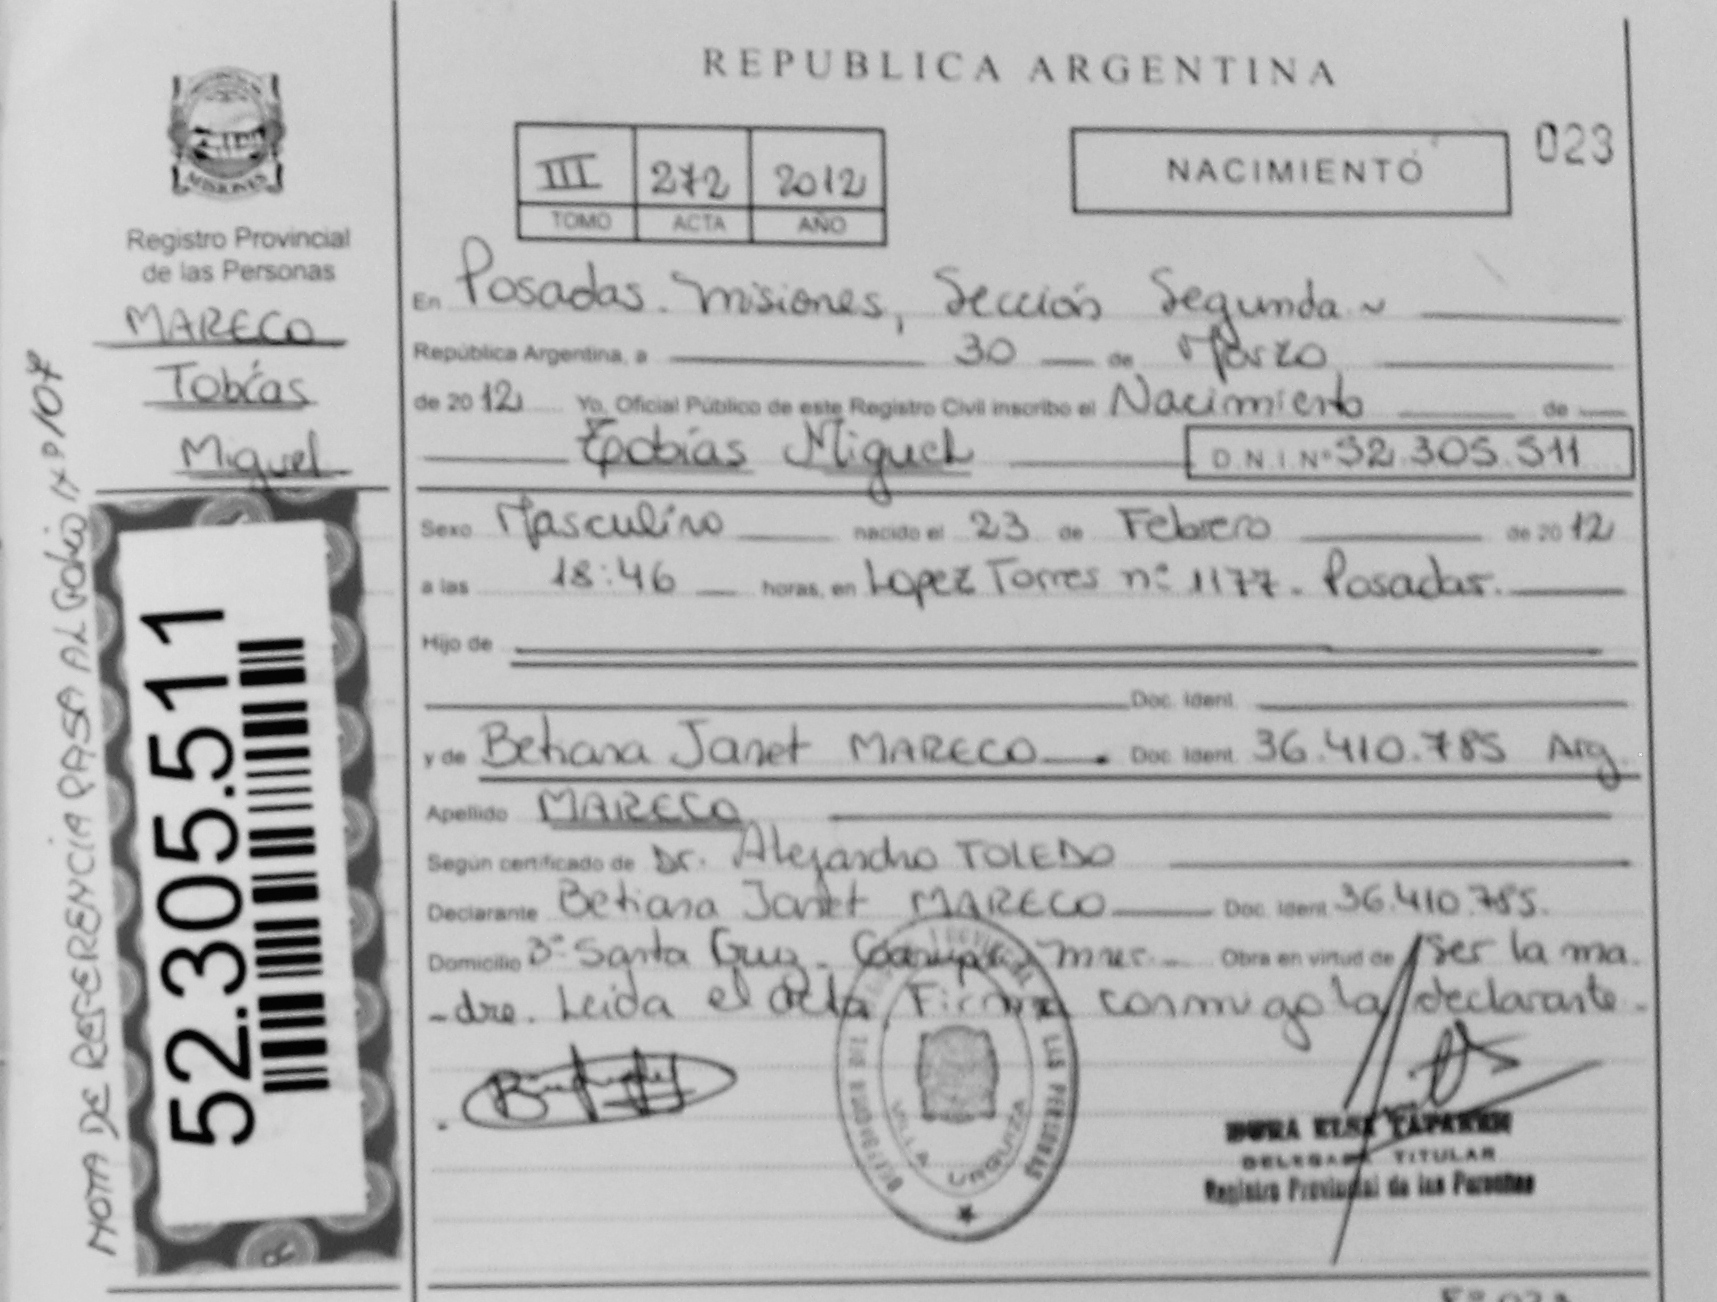 REPUBLICA ARGENTINA
III 272 2012
TOMO ACTA AÑO
NACIMIENTO
023
MISIONES
Registro Provincial
de las Personas
MARECO
Tobías
Miguel
NOTA DE REFERENCIA PASA AL
52.305.511
En Posadas. Misiones, Sección Segunda
República Argentina, a 30 de Marzo
de 2012 Yo, Oficial Público de este Registro Civil inscribo el Nacimiento de
Tobías Miguel D.N.I. Nº 52.305.511
Sexo Masculino nacido el 23 de Febrero de 2012
a las 18:46 horas, en Lopez Torres nº 1177. Posadas.
Hijo de
Doc. Ident.
y de Betiana Janet MARECO Doc. Ident. 36.410.785 Arg.
Apellido MARECO
Según certificado de Dr. Alejandro TOLEDO
Declarante Betiana Janet MARECO Doc. Ident. 36.410.785.
Domicilio Bº Santa Cruz. Mnes. Obra en virtud de ser la ma.
-dre. Leida el acta Firma conmigo la declarante.
LAS PERSONAS
VILLA URQUIZA
DELEGADA TITULAR
Registro Provincial de las Personas